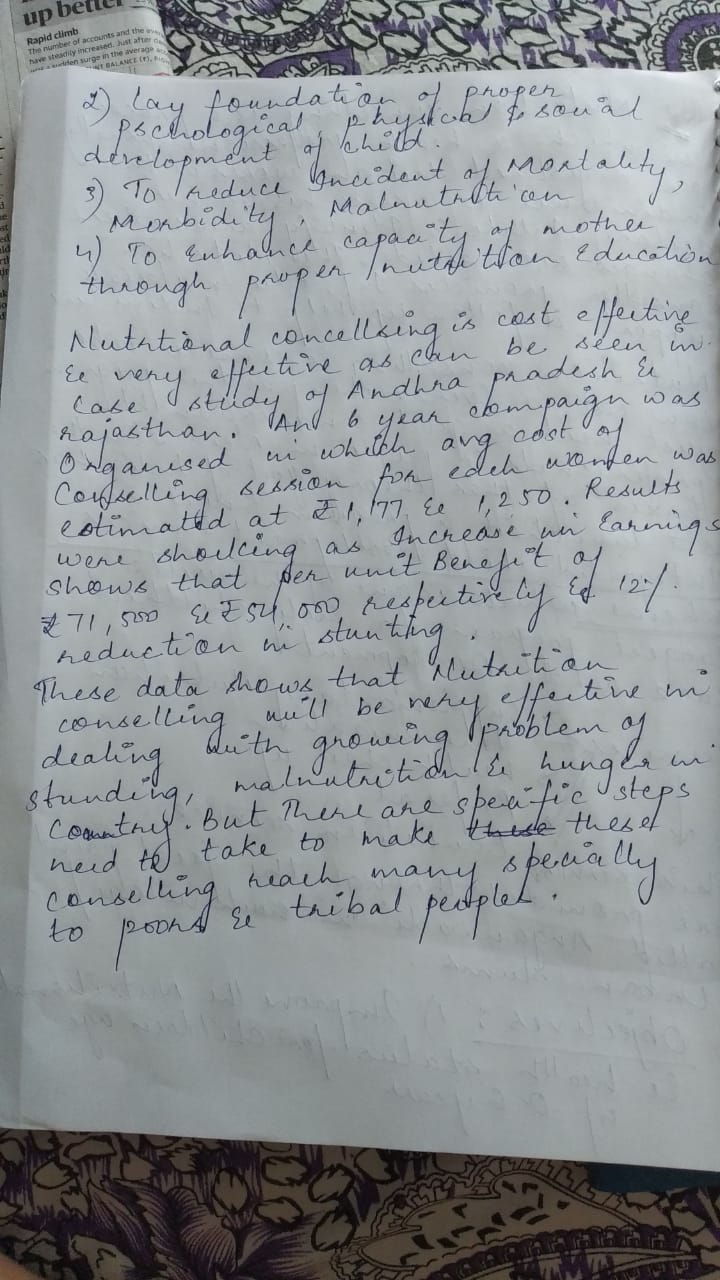 up better
Rapid climb
The number of accounts and the
have steadily increased. Just after
sudden surge in the average
BALANCE (₹),
2) Lay foundation of proper
pschological, physical & soual
development of child.
3) To reduce Incident of Mortality,
Morbidity, Malnutrition
4) To Enhance capacity of mother
through proper nutrition Education
Nutritional concellsing is cost effective
& very effective as can be seen in
Case study of Andhra pradesh &
rajasthan. And 6 year campaign was
Organised in which avg cost of
Counselling session for each women was
estimated at ₹1,177 & 1,250. Results
were shoulcing as Increase in Earnings
shows that per unit Benefit of
₹71,500 & ₹54,000 respectively & 12%
reduction in stunting.
These data shows that Nutrition
conselling will be very effective in
dealing with growing problem of
stunding, malnutrition & hunger in
Country. But There are specific steps
need to take to make these these
conselling reach many specially
to poors & tribal peoples.